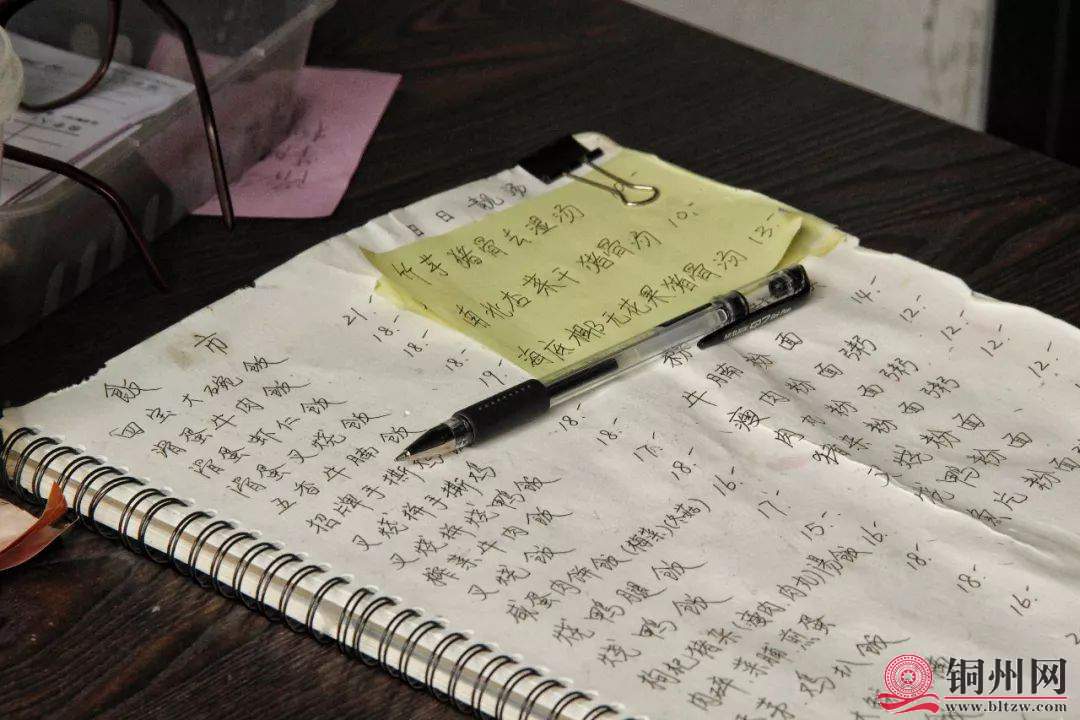 日 靓 汤
竹芋猪骨去湿汤
南北杏菜干猪骨汤 10.-
海底椰无花果猪骨汤 13.-
饭 市
四宝大碗饭 21.-
滑蛋牛肉饭 18.-
滑蛋虾仁饭 18.-
滑蛋叉烧饭 18.-
五香牛腩饭 19.-
招牌手撕鸡
叉烧拼手撕鸡 18.-
叉烧拼烧鸭饭 18.-
榨菜牛肉饭 17.-
叉烧饭 18.-
咸蛋肉饼饭(梅菜)(冬菇) 16.-
烧鸭腿饭 17.-
烧鸭饭 15.-
枸杞猪杂(瘦肉.肉丸)汤饭 16.-
肉碎菜脯煎蛋 18.-
鸡扒饭 18.-
16.-
粉 面
牛腩粉面 14.-
瘦肉粉面粥 12.-
肉丸粉面粥 12.-
猪杂粉面粥 12.-
叉烧粉面
烧鸭粉面 12.-
粉面
铜州网
www.bltzw.com